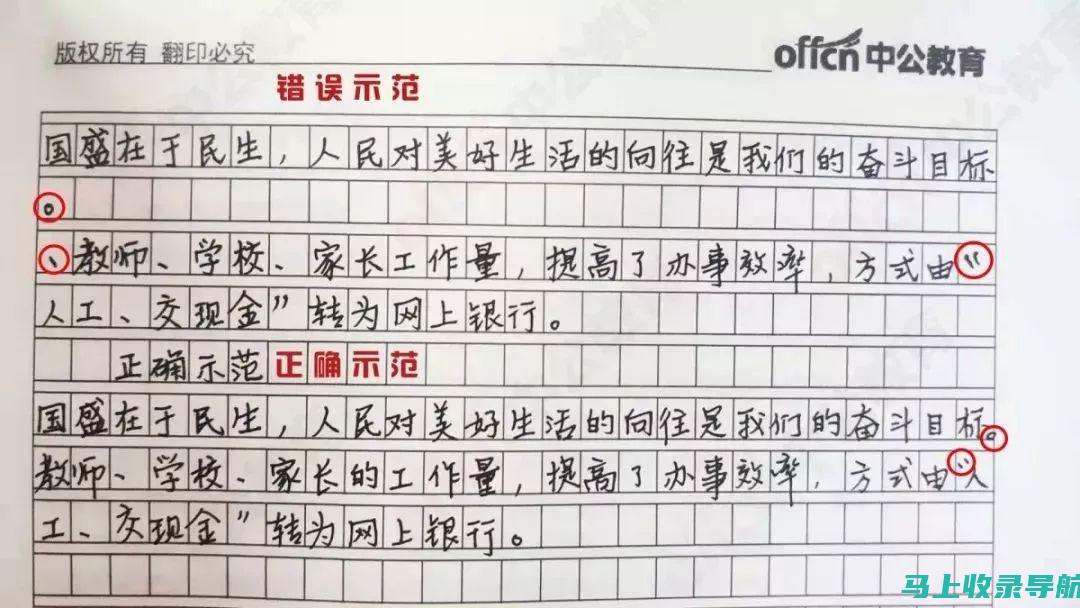 版权所有 翻印必究
offcn中公教育
错误示范
国盛在于民生，人民对美好生活的向往是我们的奋斗目标
。
、教师、学校、家长工作量，提高了办事效率，方式由“
人工、交现金”转为网上银行。
正确示范 正确示范
国盛在于民生，人民对美好生活的向往是我们的奋斗目标。
教师、学校、家长的工作量，提高了办事效率，方式由“人
工、交现金”转为网上银行。
马上收录导航